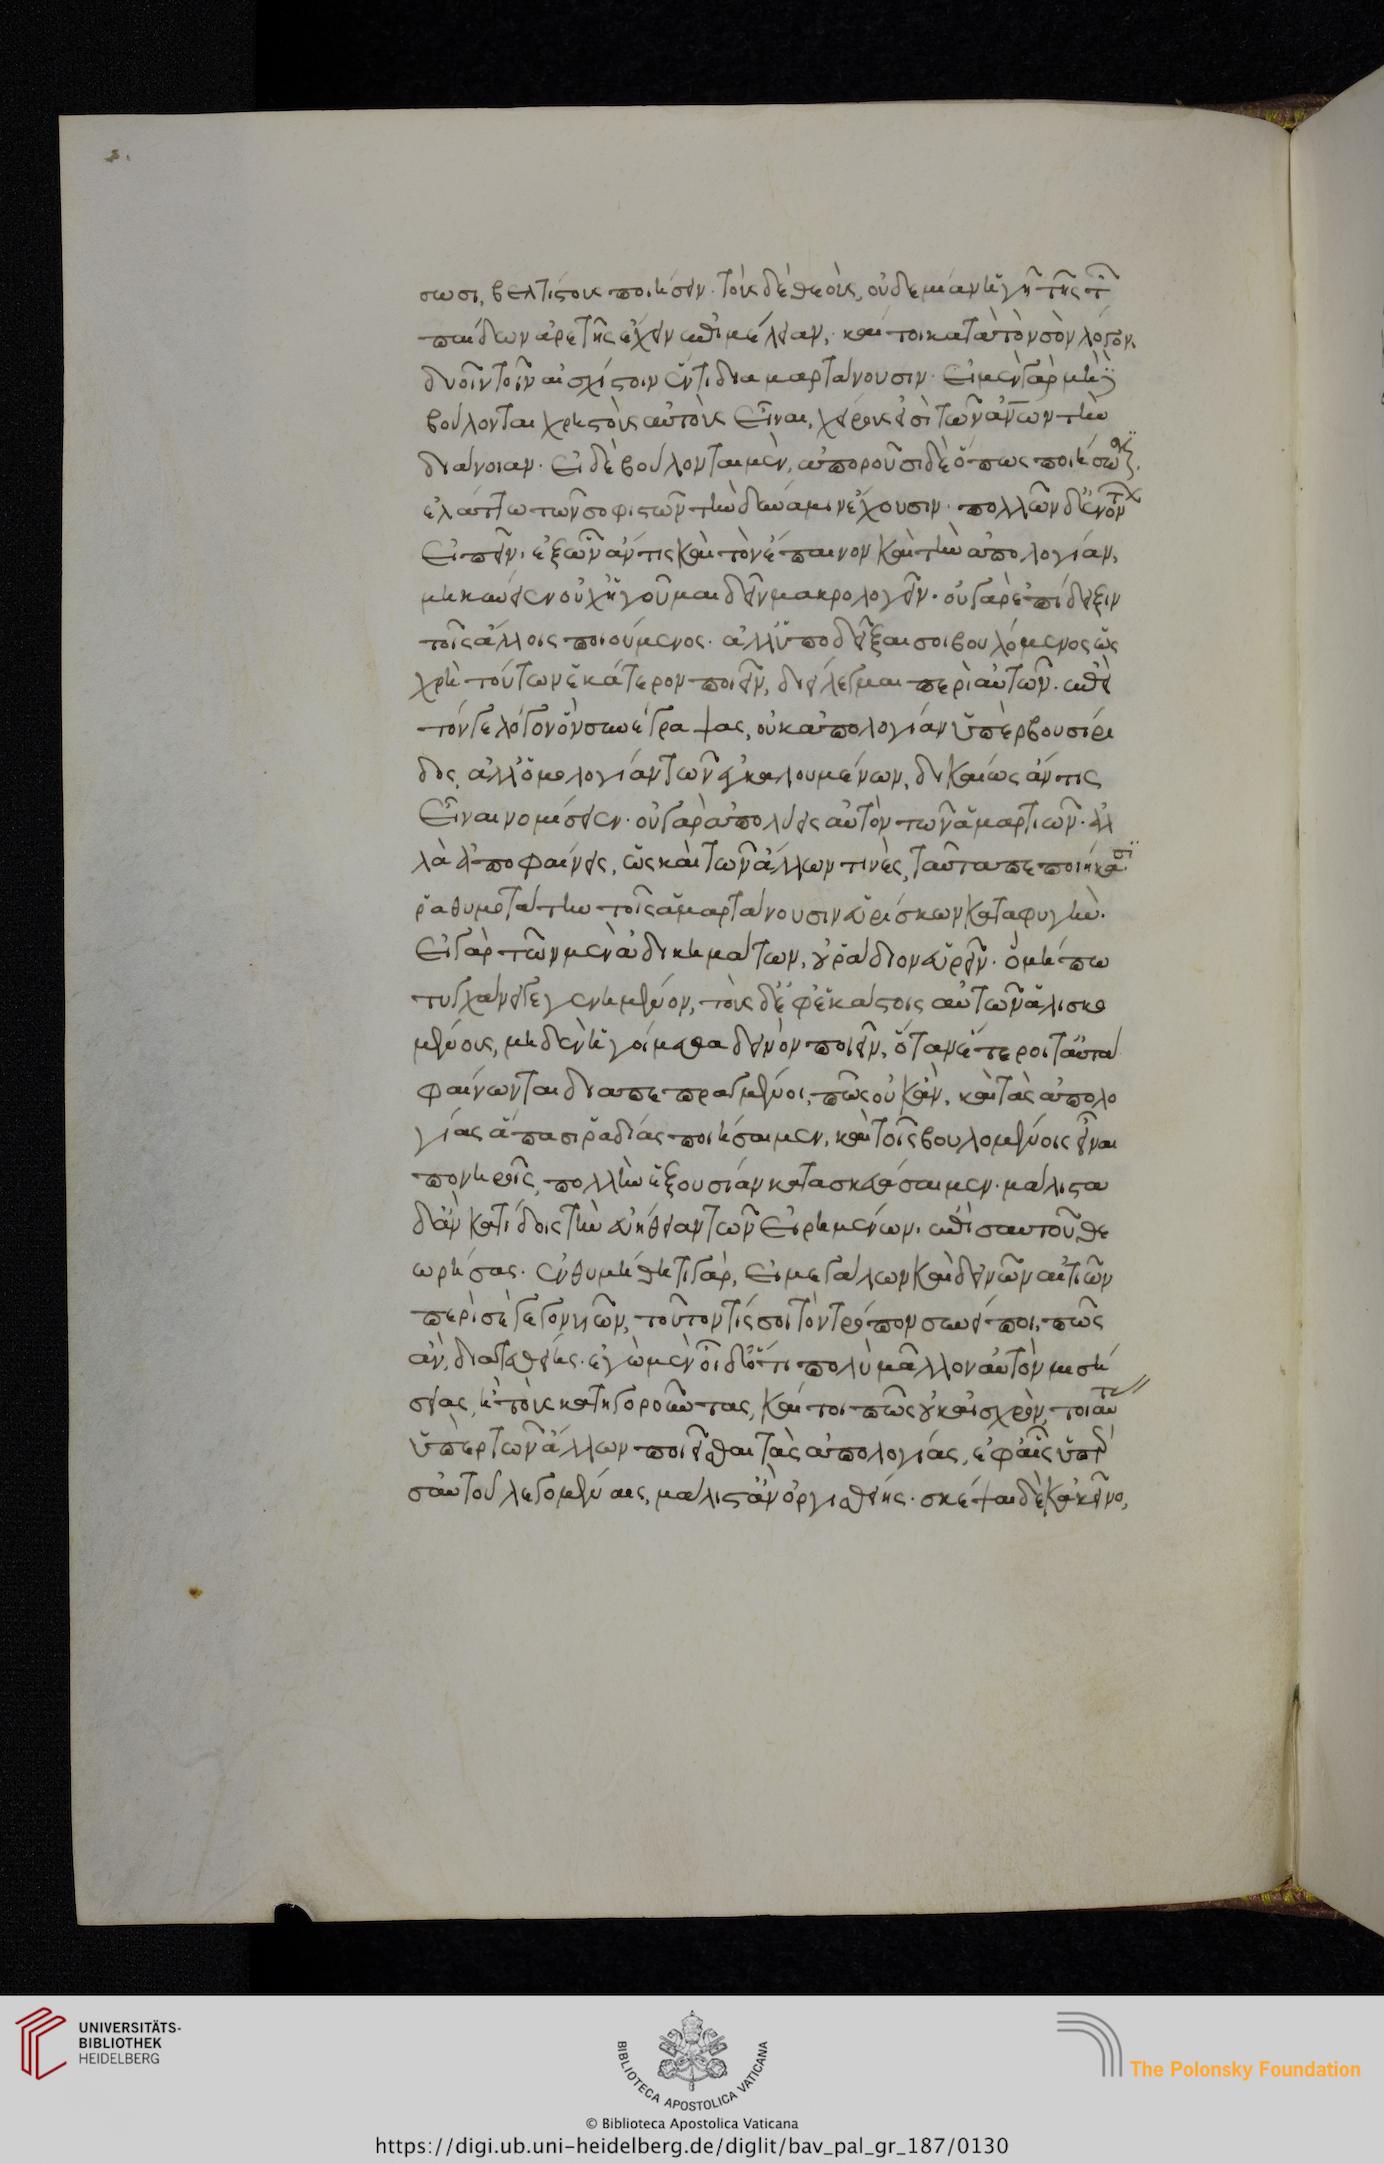 σωσι, βελτίστους ποιήσειν. τοὺς δὲ θεοὺς, οὐδεμίαν ἡγῇ τῆς τῶν
παίδων ἀρετῆς ἔχειν ἐπιμέλειαν. καίτοι κατὰ τὸν σὸν λόγον,
δυοῖν τοῖν αἰσχίστοιν ἕν τι διαμαρτάνουσιν. Εἰ μὲν γὰρ μὴ
βούλονται χρηστοὺς αὐτοὺς εἶναι, χείρους εἰσὶ τῶν ἀνων τὴν
διάνοιαν. Εἰ δὲ βούλονται μὲν, ἀποροῦσι δὲ ὅπως ποιήσωσιν,
ἐλάττω τῶν σοφιστῶν τὴν δύναμιν ἔχουσιν. πολλῶν δ' ἐνόντων
εἰπεῖν, ἐξ ὧν ἄν τις καὶ τὸν ἔπαινον καὶ τὴν ἀπολογίαν,
μηκύνειεν οὐχ ἡγοῦμαι δεῖν μακρολογεῖν. οὐ γὰρ ἐπίδειξιν
τοῖς ἄλλοις ποιούμενος. ἀλλ' ὑποδεῖξαι σοι βουλόμενος ὡς
χρὴ τούτων ἑκάτερον ποιεῖν, διείλεγμαι περὶ αὐτῶν. ἐπεὶ
τόν γε λόγον ὃν σὺ ἔγραψας, οὐκ ἀπολογίαν ὑπὲρ βουσίρι
δος, ἀλλ' ὁμολογίαν τῶν ἐγκαλουμένων, δικαίως ἄν τις
εἶναι νομίσειεν. οὐ γὰρ ἀπολύεις αὐτὸν τῶν ἁμαρτιῶν. ἀλ
λὰ ἀποφαίνεις, ὡς καὶ τῶν ἄλλων τινὲς, ταῦτα πεποιήκασι.
ῥαθυμοτάτην τοῖς ἁμαρτάνουσιν εὑρίσκων καταφυγήν.
Εἰ γὰρ τῶν μὲν ἀδικημάτων, οὐ ῥάδιον εὑρεῖν. ὃ μήπω
τυγχάνει γεγενημένον, τοὺς δὲ ἐφ' ἑκάστοις αὐτῶν ἁλισκο
μένους, μηδὲν ἡγοίμεθα δεινὸν ποιεῖν, ὅταν ἕτεροι ταῦτα
φαίνωνται διαπεπραγμένοι, πῶς οὐκ ἂν, καὶ τὰς ἀπολο
γίας ἅπασι ῥαδίας ποιήσαιμεν, καὶ τοῖς βουλομένοις εἶναι
πονηροῖς, πολλὴν ἐξουσίαν κατασκευάσαιμεν. μάλιστα
δ' ἂν κατίδοις τὴν εὐήθειαν τῶν εἰρημένων, ἐπὶ σαυτοῦ θε
ωρήσας. ἐνθυμήθητι γὰρ, εἰ μεγάλων καὶ δεινῶν αἰτιῶν
περὶ σὲ γεγονυιῶν, τοῦτον τίς σοι τὸν τρόπον συνείποι, πῶς
ἂν, διατεθείης. ἐγὼ μὲν οἶδ' ὅτι πολὺ μᾶλλον αὐτὸν μισή
σειας, ἢ τοὺς κατηγοροῦντας, καίτοι πῶς οὐκ αἰσχρὸν, τοιαύτας
ὑπὲρ τῶν ἄλλων ποιεῖσθαι τὰς ἀπολογίας, ἐφ' αἷς ὑπὲρ
σαυτοῦ λεγομέναις, μάλιστ' ἂν ὀργισθείης. σκέψαι δὲ κἀκεῖνο,
UNIVERSITÄTS-
BIBLIOTHEK
HEIDELBERG
BIBLIOTECA APOSTOLICA VATICANA
The Polonsky Foundation
© Biblioteca Apostolica Vaticana
https://digi.ub.uni-heidelberg.de/diglit/bav_pal_gr_187/0130